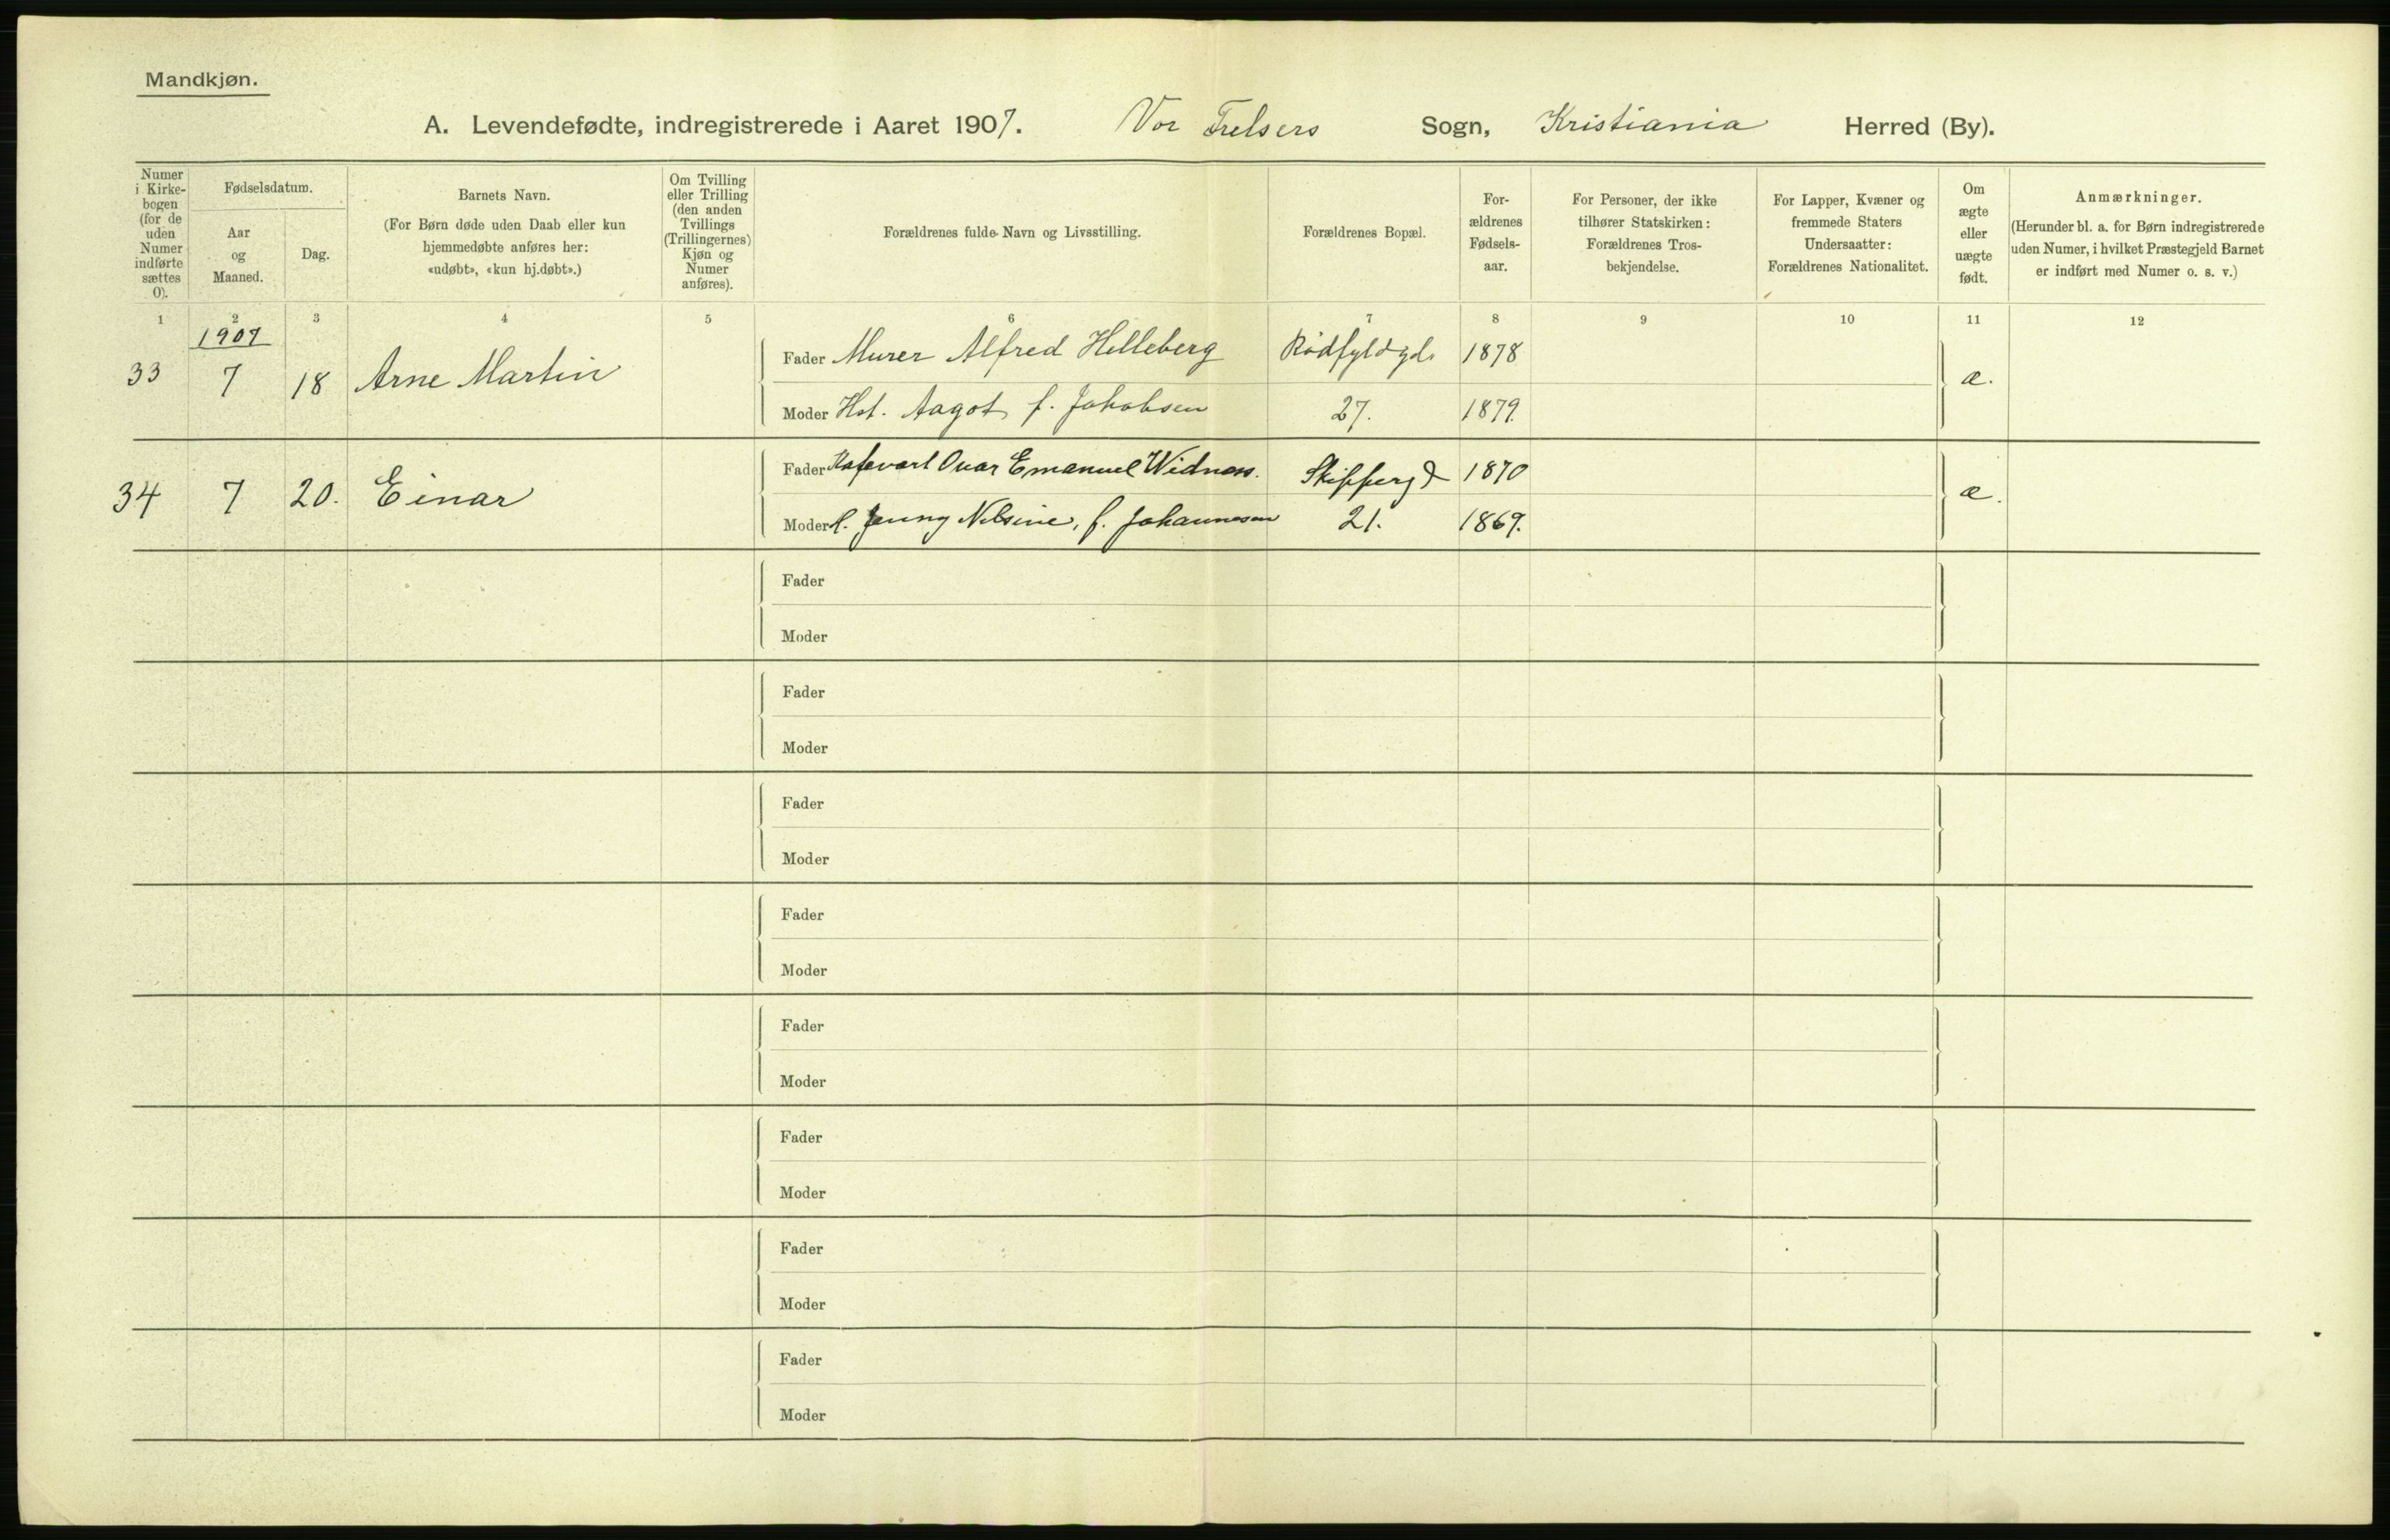 Mandkjøn.
A. Levendefødte, indregistrerede i Aaret 1907. Vor Frelsers Sogn, Kristiania Herred (By).
Numer i Kirkebogen (for de uden Numer indførte sættes 0).
Fødselsdatum.
Aar og Maaned.
Dag.
Barnets Navn.
(For Børn døde uden Daab eller kun hjemmedøbte anføres her: «udøbt», «kun hj.døbt».)
Om Tvilling eller Trilling (den anden Tvillings (Trillingernes) Kjøn og Numer anføres).
Forældrenes fulde Navn og Livsstilling.
Forældrenes Bopæl.
Forældrenes Fødselsaar.
For Personer, der ikke tilhører Statskirken: Forældrenes Trosbekjendelse.
For Lapper, Kvæner og fremmede Staters Undersaatter: Forældrenes Nationalitet.
Om ægte eller uægte født.
Anmærkninger.
(Herunder bl. a. for Børn indregistrerede uden Numer, i hvilket Præstegjeld Barnet er indført med Numer o. s. v.)
1 2 3 4 5 6 7 8 9 10 11 12
1907
33 7 18 Arne Martin
Fader Murer Alfred Helleberg Rødfyldgd. 1878
Moder Hst. Aagot f. Jakobsen 27. 1879.
æ.
34 7 20. Einar
Fader Emanuel Widness. Skipperg 1870
Moder Jenny Nilsine, f. Johannesen 21. 1869.
æ.
Fader
Moder
Fader
Moder
Fader
Moder
Fader
Moder
Fader
Moder
Fader
Moder
Fader
Moder
Fader
Moder